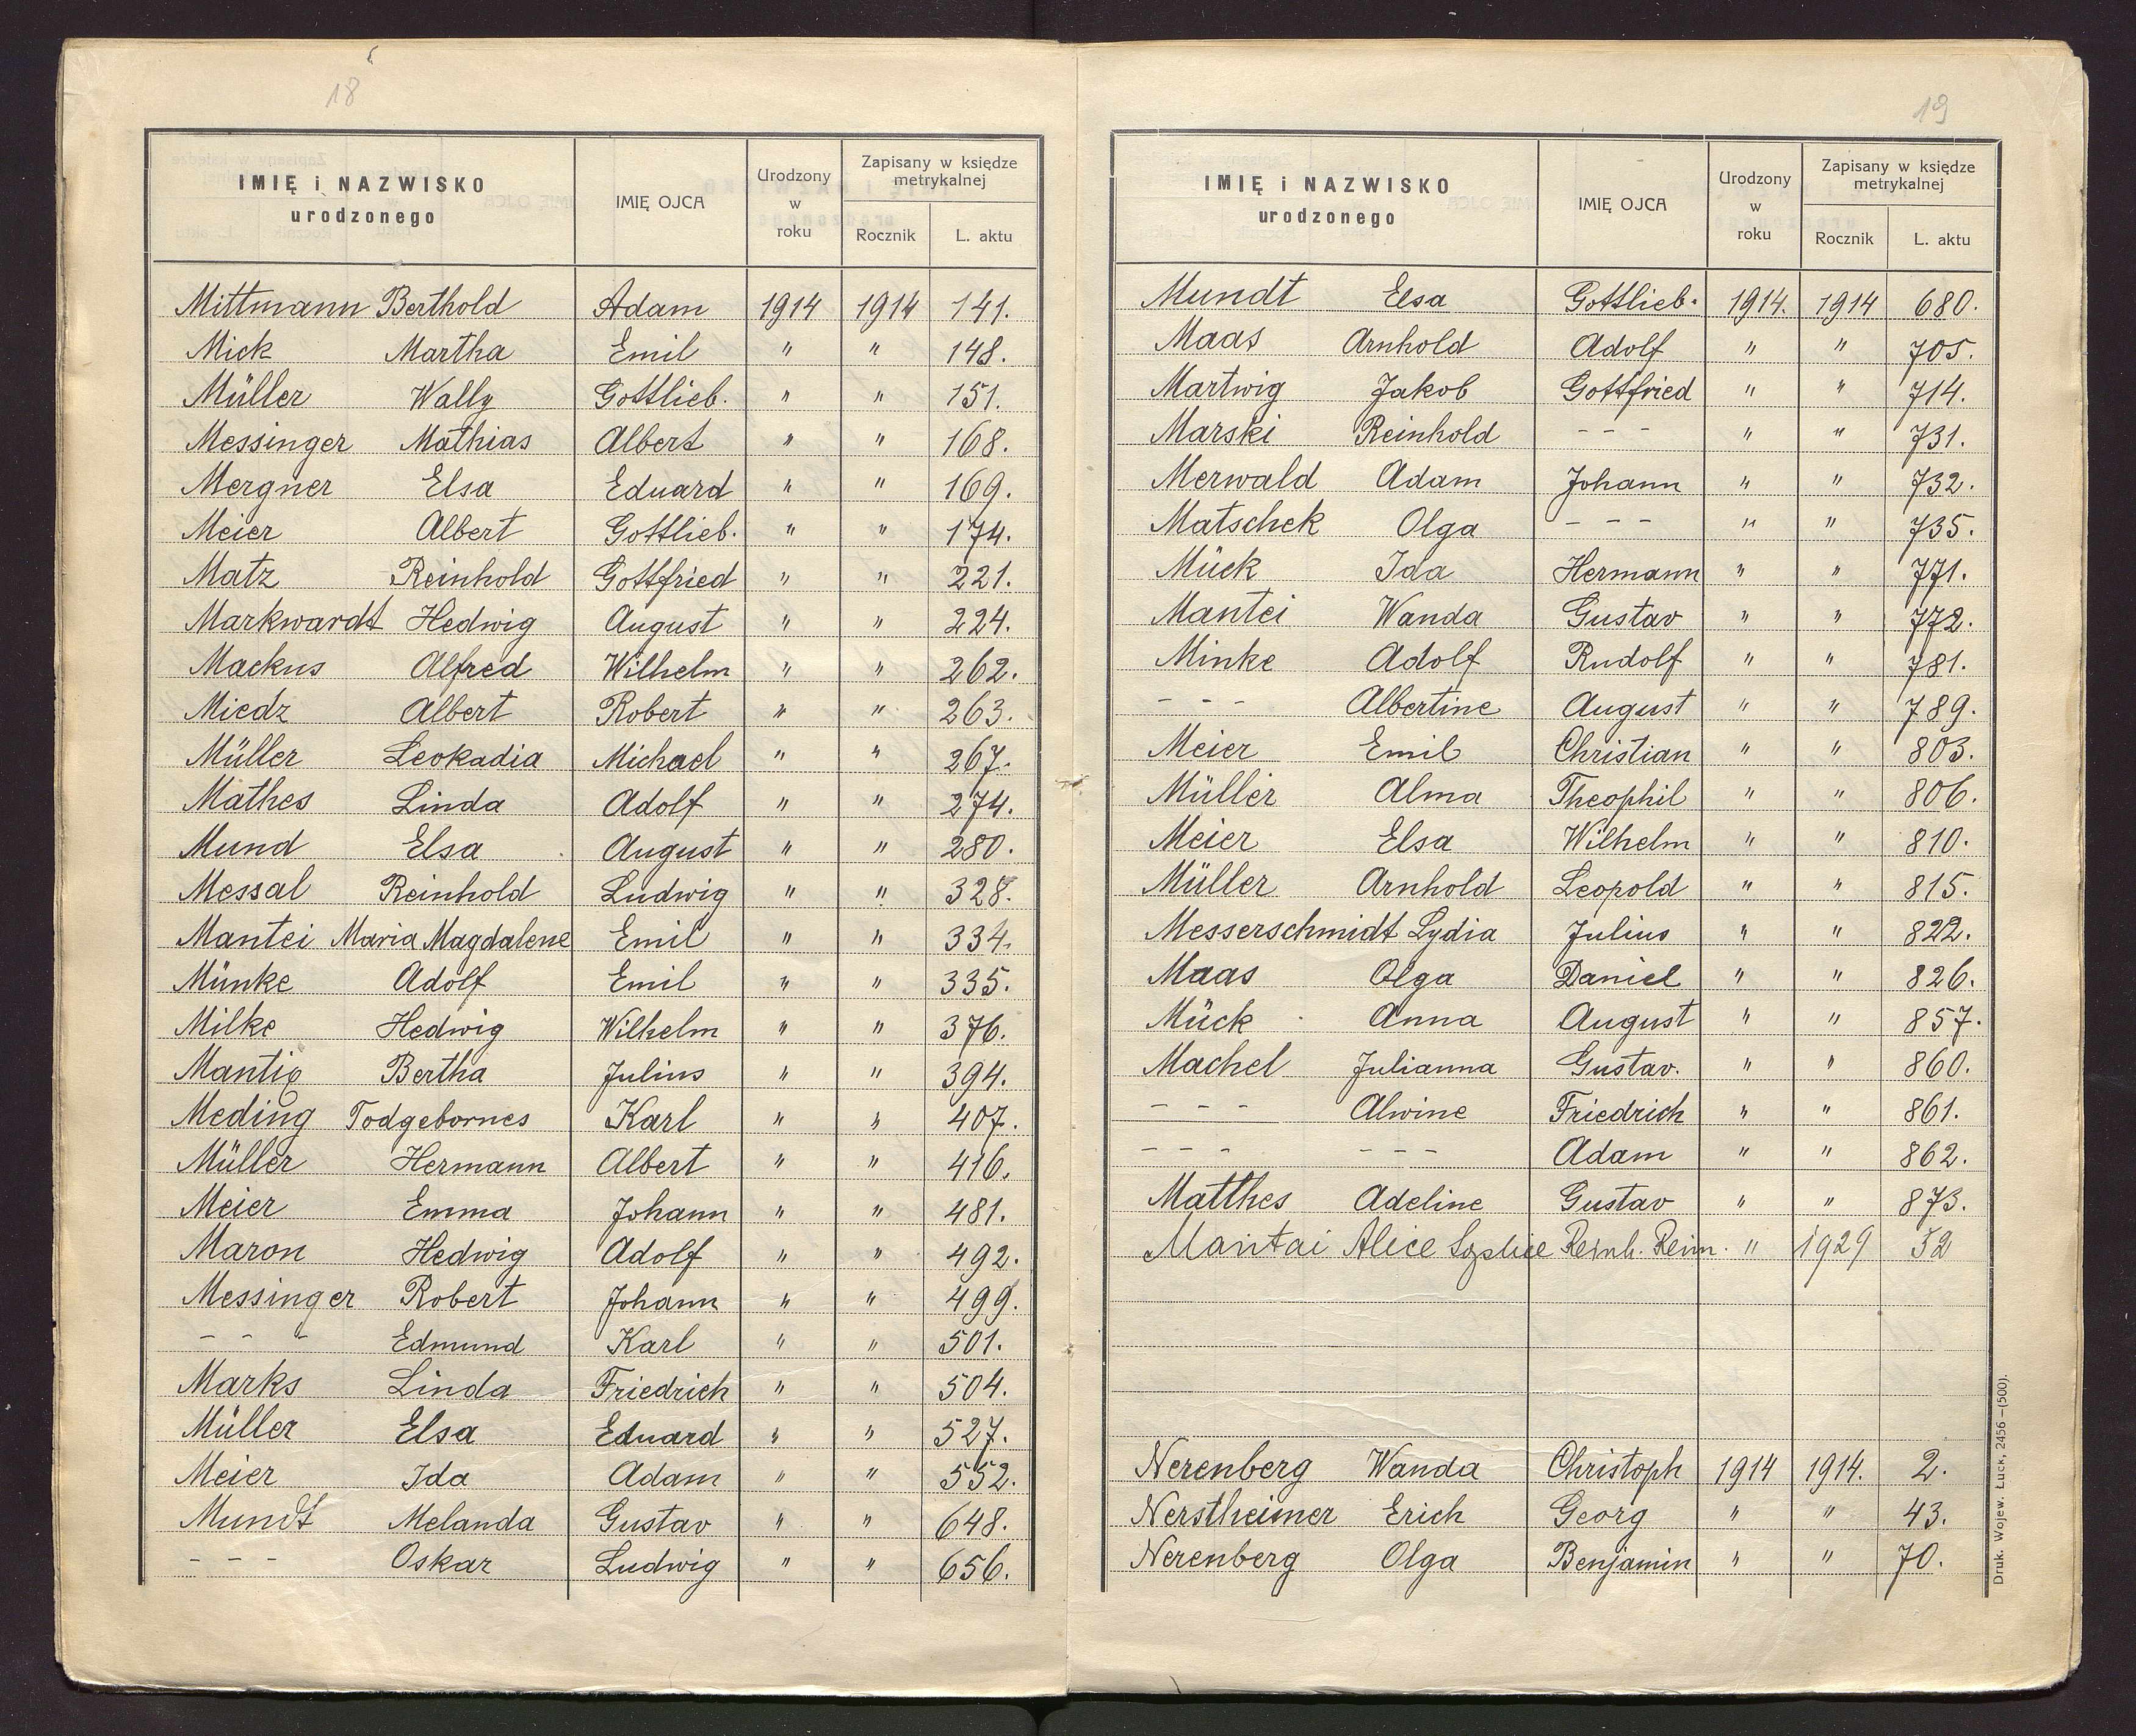 18
IMIĘ i NAZWISKO urodzonego IMIĘ OJCA Urodzony w roku Zapisany w księdze metrykalnej Rocznik L. aktu
Mittmann Berthold Adam 1914 1914 141.
Mick Martha Emil " " 148.
Müller Wally Gottlieb. " " 151.
Messinger Mathias Albert " " 168.
Mergner Elsa Eduard " " 169.
Meier Albert Gottlieb. " " 174.
Matz Reinhold Gottfried " " 221.
Markwardt Hedwig August " " 224.
Mackus Alfred Wilhelm " " 262.
Miedz Albert Robert " " 263.
Müller Leokadia Michael " " 267.
Mathes Linda Adolf " " 274.
Mund Elsa August " " 280.
Messal Reinhold Ludwig " " 328.
Mantei Maria Magdalene Emil " " 334.
Münke Adolf Emil " " 335.
Milke Hedwig Wilhelm " " 376.
Bertha Julius " " 394.
Meding Todgebornes Karl " " 407.
Müller Hermann Albert " " 416.
Meier Emma Johann " " 481.
Maron Hedwig Adolf " " 492.
Messinger Robert Johann " " 499.
- - - Edmund Karl " " 501.
Marks Linda Friedrich " " 504.
Müller Elsa Eduard " " 527.
Meier Ida Adam " " 552.
Mundt Melanda Gustav " " 648.
- - - Oskar Ludwig " " 656.
19
IMIĘ i NAZWISKO urodzonego IMIĘ OJCA Urodzony w roku Zapisany w księdze metrykalnej Rocznik L. aktu
Mundt Elsa Gottlieb. 1914. 1914 680.
Maas Arnhold Adolf " " 705.
Martwig Jakob Gottfried " " 714.
Marski Reinhold - - - " " 731.
Merwald Adam Johann " " 732.
Matschek Olga - - - " " 735.
Mück Ida Hermann " " 771.
Mantei Wanda Gustav " " 772.
Minke Adolf Rudolf " " 781.
- - - Albertine August " " 789.
Meier Emil Christian " " 803.
Müller Alma Theophil " " 806.
Meier Elsa Wilhelm " " 810.
Müller Arnhold Leopold " " 815.
Messerschmidt Lydia Julius " " 822.
Maas Olga Daniel " " 826.
Mück Anna August " " 857.
Machel Julianna Gustav. " " 860.
- - - Alwine Friedrich " " 861.
- - - - - - Adam " " 862.
Matthes Adeline Gustav " " 873.
Mantai Alice Reinh. " 1929 32
Nerenberg Wanda Christoph 1914 1914. 2.
Nerstheimer Erich Georg " " 43.
Nerenberg Olga Benjamin " " 70.
Druk. Wojew. Łuck, 2456 — (500).